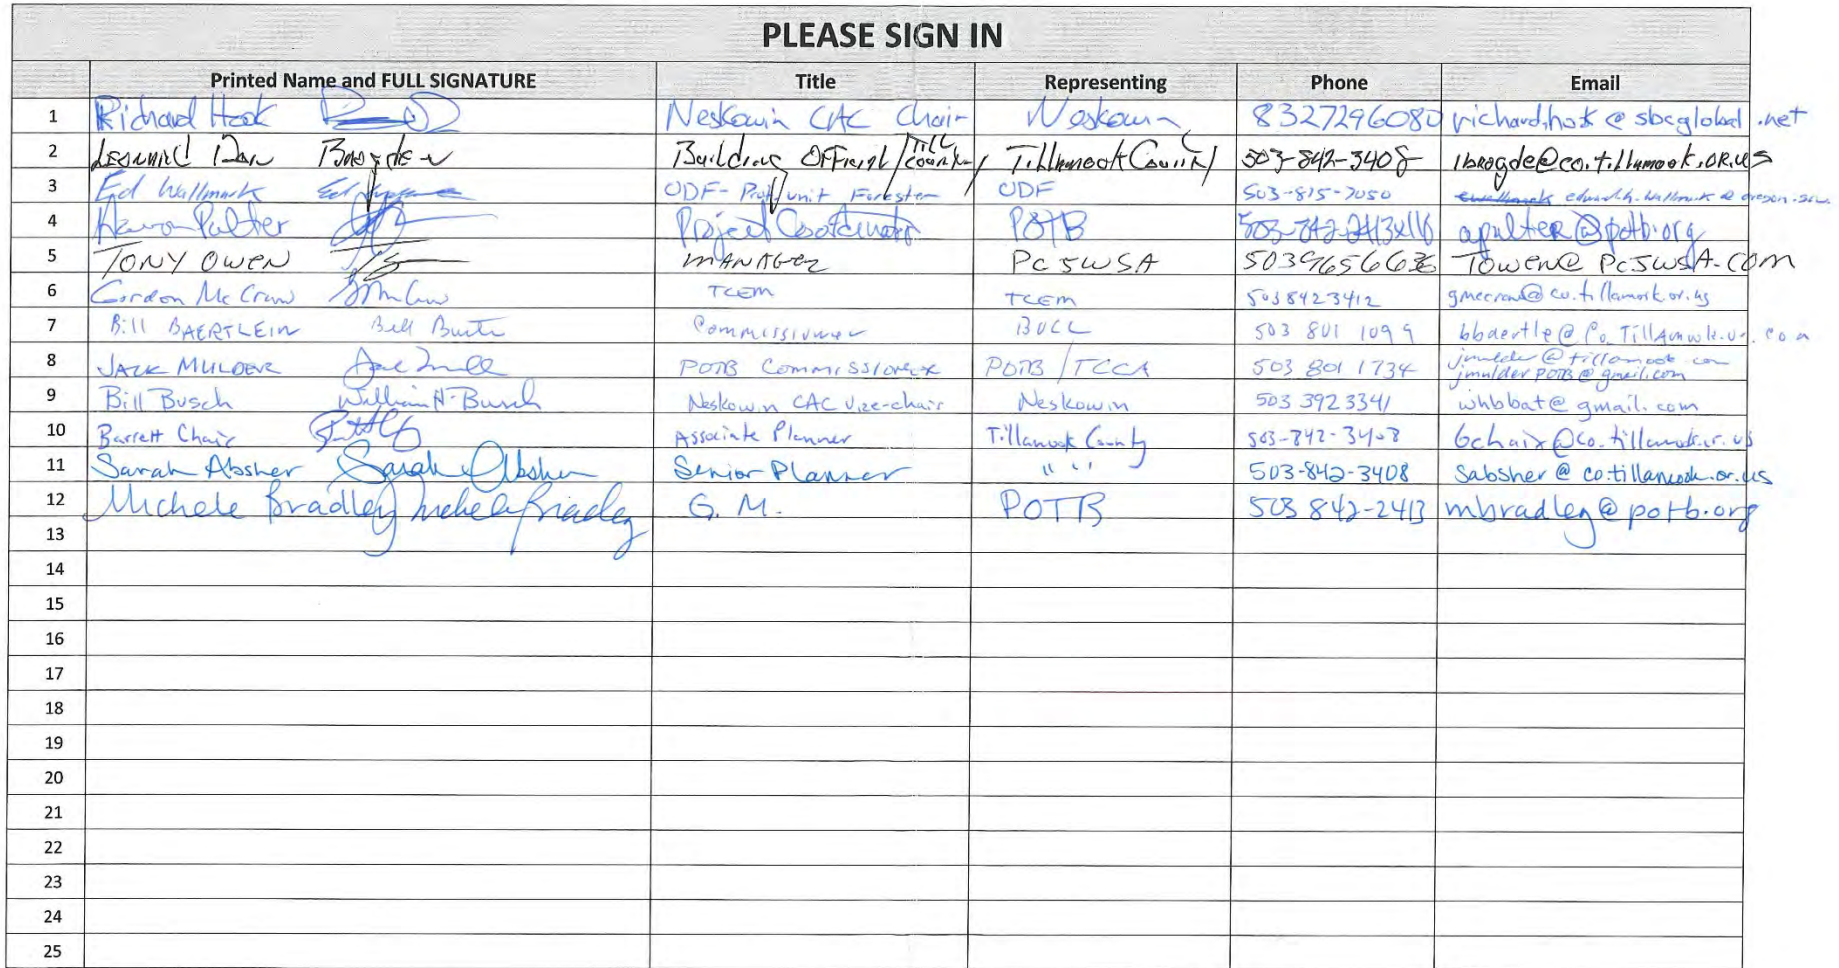 PLEASE SIGN IN
Printed Name and FULL SIGNATURE Title Representing Phone Email
1 Richard Hook Neskowin CAC Chair Neskowin 8327296080 richard.hook@sbcglobal.net
2 Building Official / Till County Tillamook County 503-842-3408 lbrogde@co.tillamook.OR.US
3 Ed Wallmark ODF- unit Forester ODF 503-815-7050
4 Aaron Palter Project Coordinator POTB 503-842-2413x116 apalter@potb.org
5 TONY OWEN MANAGER PCJWSA 5039656636 TOWEN@PCJWSA.COM
6 Gordon McCraw TCEM TCEM 5038423412 gmccraw@co.tillamook.or.us
7 Bill BAERTLEIN Commissioner BOCC 503 801 1099
8 JACK MULDER POTB Commissioner POTB/TCCA 503 801 1734 jmulder@tillamook.com
jmulderPOTB@gmail.com
9 Bill Busch William H. Busch Neskowin CAC Vice-chair Neskowin 503 392 3341 whbbat@gmail.com
10 Barrett Chair Associate Planner Tillamook County 503-842-3408 bchair@co.tillamook.or.us
11 Sarah Absher Sarah Absher Senior Planner " " 503-842-3408 sabsher@co.tillamook.or.us
12 Michele Bradley Michele Bradley G. M. POTB 503 842-2413 mbradley@potb.org
13
14
15
16
17
18
19
20
21
22
23
24
25